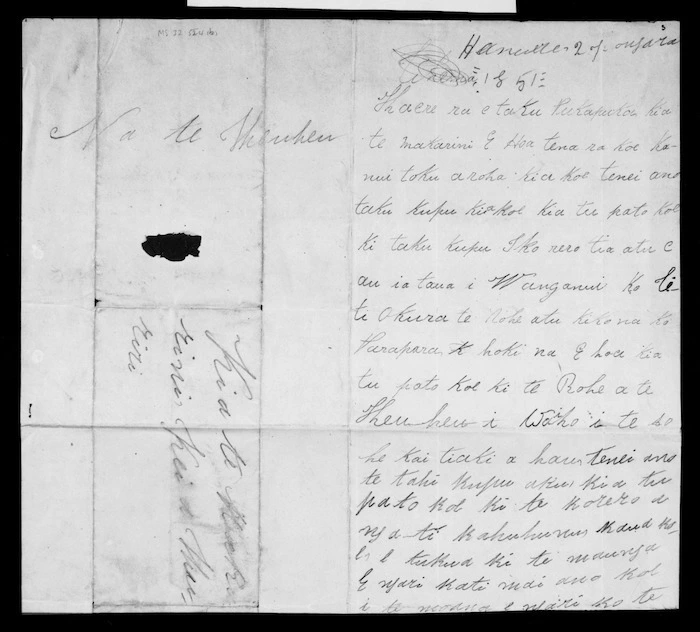 Hanuere 2 o nga ra
1851
Haere ra e taku Pukapuka kia
te makarini E Hoa tena ra koe Ka
nui toku aroha kia koe tenei ano
taku kupu kia koe kia tu pato koe
ki taku kupu I ko rero tia atu e
au ia taua i Wanganui ko
te Rohe atu kikona ko
Parapara hoki na E hoa kia
tu pato koe ki te Rohe a te
Heu heu i Waho i te ro
he kai tiaki a hau tenei ano
te tahi kupu aku kia tu
pato koe ki te korero a
nga ti kahuhunu kaua ko
e e tukua ki te maunga
E ngari kati mai ano koe
i te moana e ngari ko te
Na te Heuheu
Kia te Maka
rini kei a